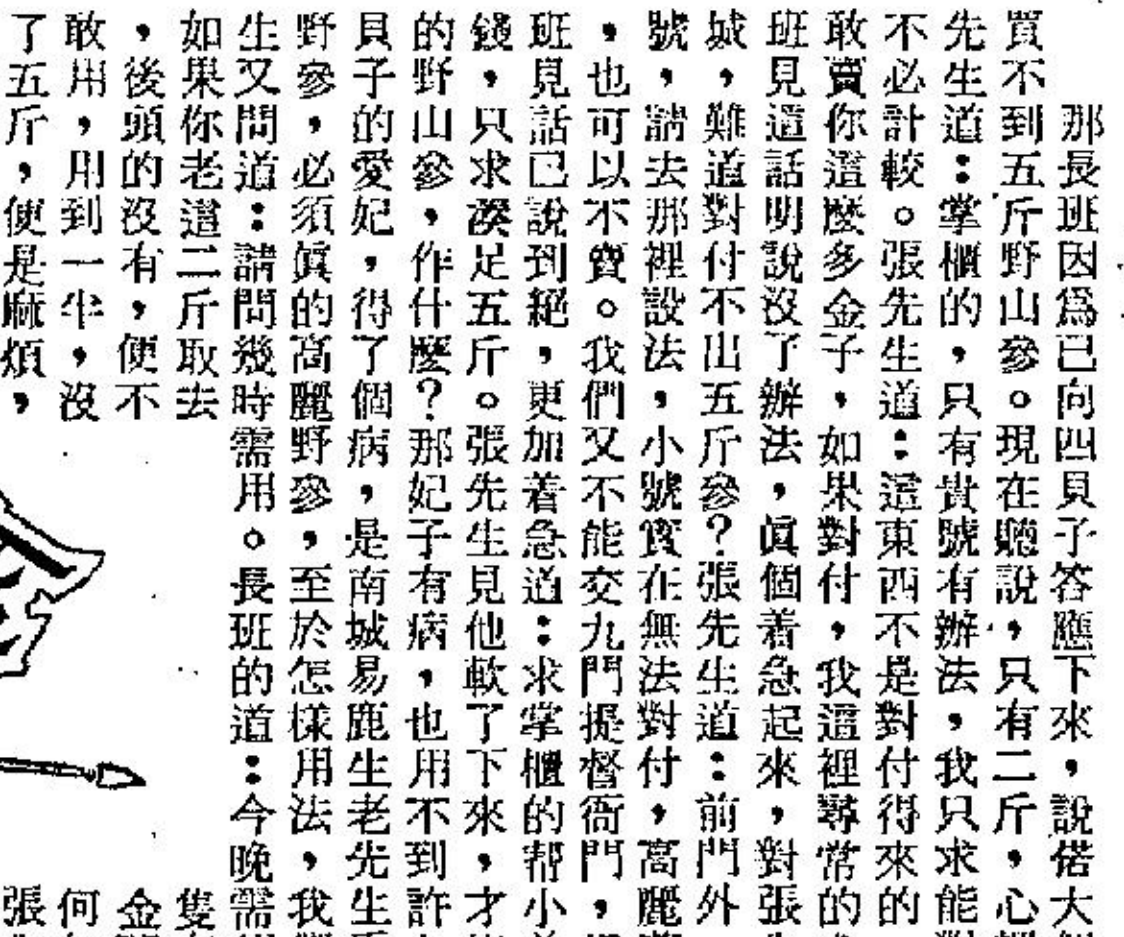 那長班因爲已向四貝子答應下來，說偌大
買不到五斤野山參。現在聽說，只有二斤，心
先生道：掌櫃的，只有貴號有辦法，我只求能
不必計較。張先生道：這東西不是對付得來的
敢賣你這麼多金子，如果對付，我這裡尋常的
班見這話明說沒了辦法，眞個着急起來，對張
城，難道對付不出五斤參？張先生道：前門外
號，請去那裡設法，小號實在無法對付，高麗
，也可以不賣。我們又不能交九門提督衙門，
班見話已說到絕，更加着急道：求掌櫃的帮小
錢，只求湊足五斤。張先生見他軟了下來，才
的野山參，作什麼？那妃子有病，也用不到許
貝子的愛妃，得了個病，是南城易鹿生老先生
野參，必須眞的高麗野參，至於怎樣用法，我
生又問道：請問幾時需用。長班的道：今晚需
如果你老這二斤取去
，後頭的沒有，便不
敢用，用到一半，沒
了五斤，便是麻煩，
隻
金
何
張